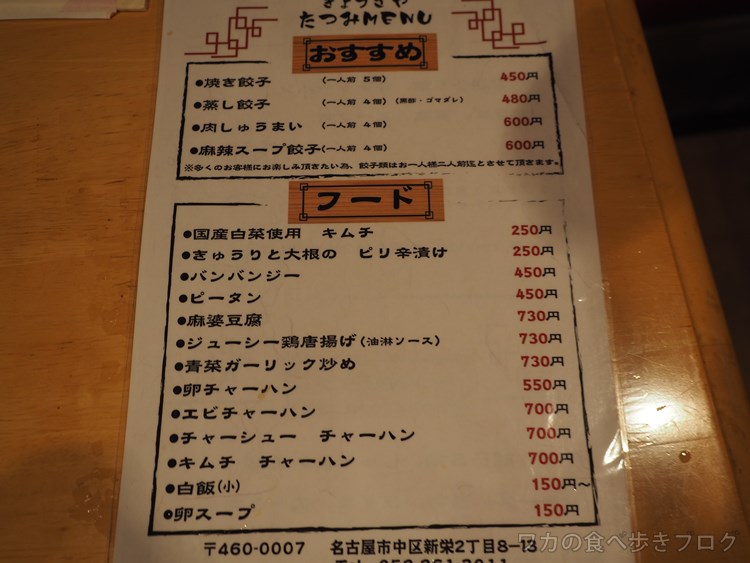 ぎょうざや
たつみMENU
おすすめ
●焼き餃子 (一人前 5個) 450円
●蒸し餃子 (一人前 4個) (黒酢・ゴマダレ) 480円
●肉しゅうまい (一人前 4個) 600円
●麻辣スープ餃子(一人前 4個) 600円
※多くのお客様にお楽しみ頂きたい為、餃子類はお一人様二人前迄とさせて頂きます。
フード
●国産白菜使用 キムチ 250円
●きゅうりと大根の ピリ辛漬け 250円
●バンバンジー 450円
●ピータン 450円
●麻婆豆腐 730円
●ジューシー鶏唐揚げ(油淋ソース) 730円
●青菜ガーリック炒め 730円
●卵チャーハン 550円
●エビチャーハン 700円
●チャーシュー チャーハン 700円
●キムチ チャーハン 700円
●白飯(小) 150円〜
●卵スープ 150円
〒460-0007 名古屋市中区新栄2丁目8-13
ワカの食べ歩きブログ